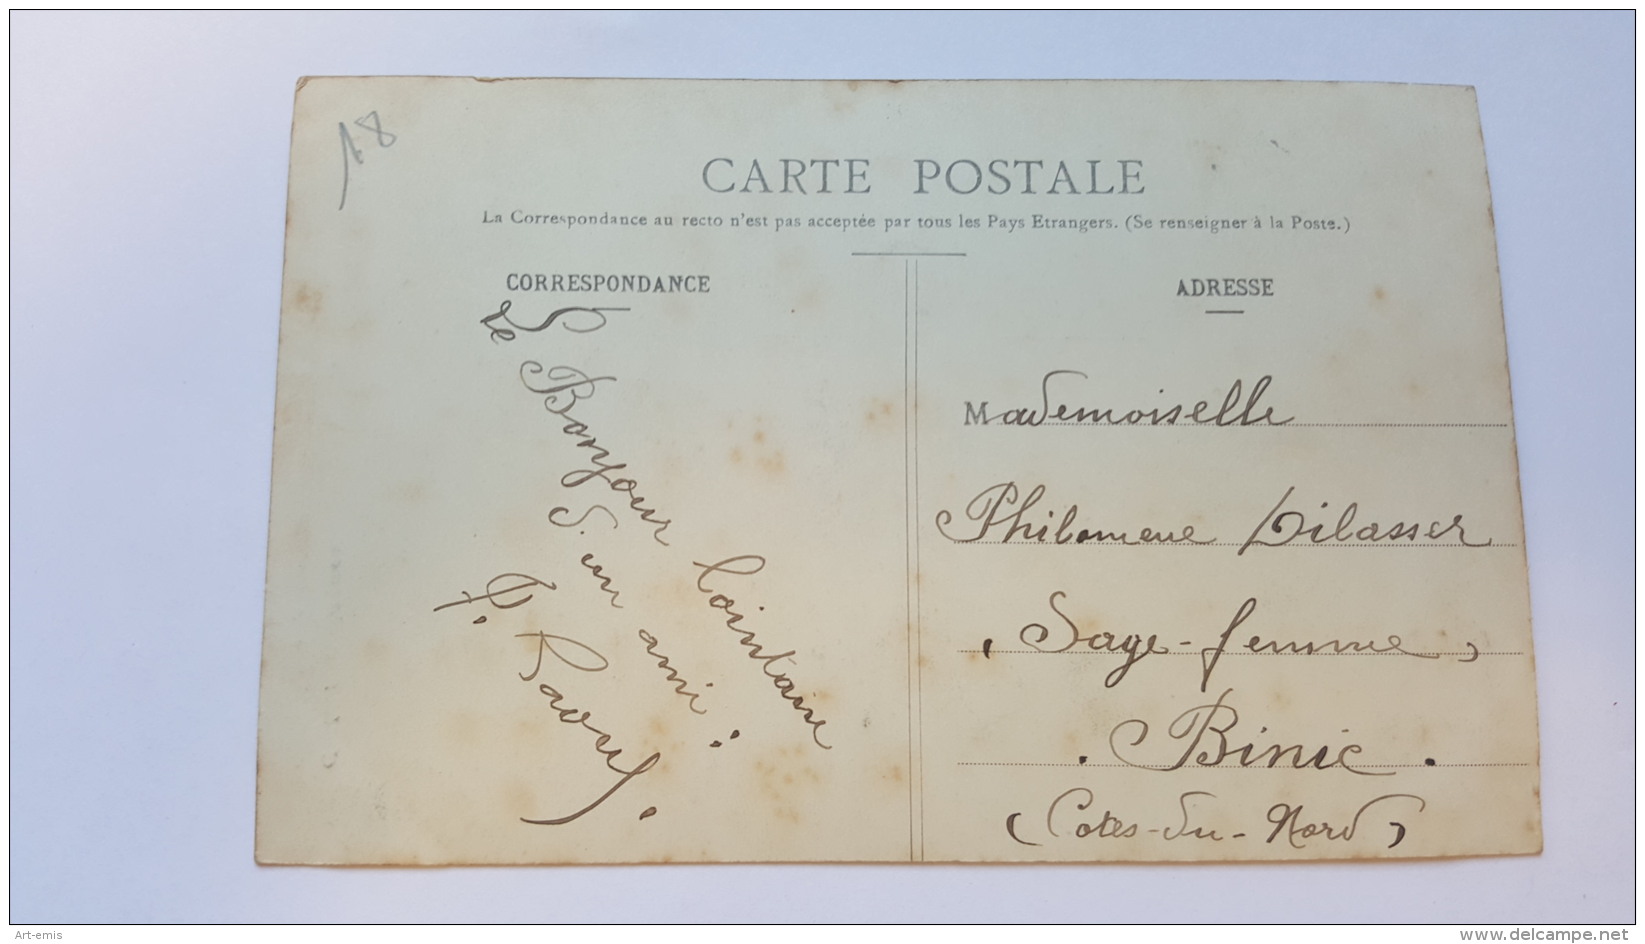 18
CARTE POSTALE
La Correspondance au recto n'est pas acceptée par tous les Pays Etrangers. (Se renseigner à la Poste.)
CORRESPONDANCE
Le Bonjour lointain
d'un ami :
P. Raoul.
ADRESSE
Mademoiselle
Philomene Dilasser
(Sage-femme)
. Binic .
(Cotes-du-Nord)
Art-emis
www.delcampe.net